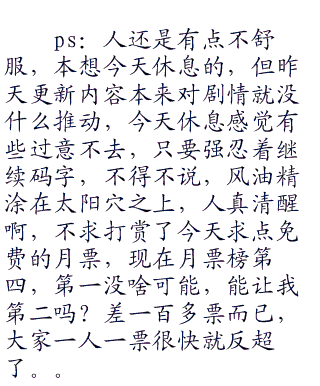 ps：人还是有点不舒
服，本想今天休息的，但昨
天更新内容本来对剧情就没
什么推动，今天休息感觉有
些过意不去，只要强忍着继
续码字，不得不说，风油精
涂在太阳穴之上，人真清醒
啊，不求打赏了今天求点免
费的月票，现在月票榜第
四，第一没啥可能，能让我
第二吗？差一百多票而已，
大家一人一票很快就反超
了。。